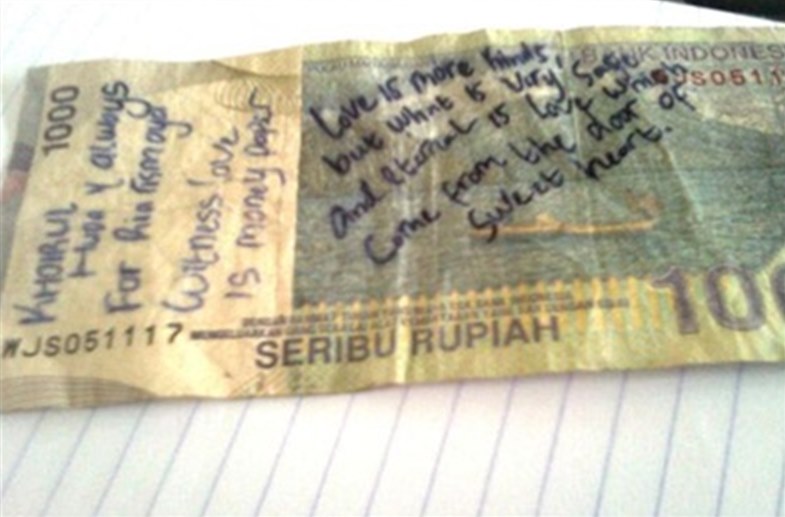 1000
KHOIRUL
Huda Y always
For Ria Rismaya
Witness love
is money paper
Love is more kinds,
but what is very safe
and eternal is love which
come from the door of
sweet heart.
BANK INDONES
WJS05111
WJS051117
SERIBU RUPIAH
100